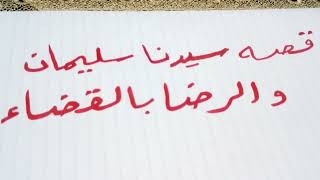 قصه سيدنا سليمان
والرضا بالقضاء